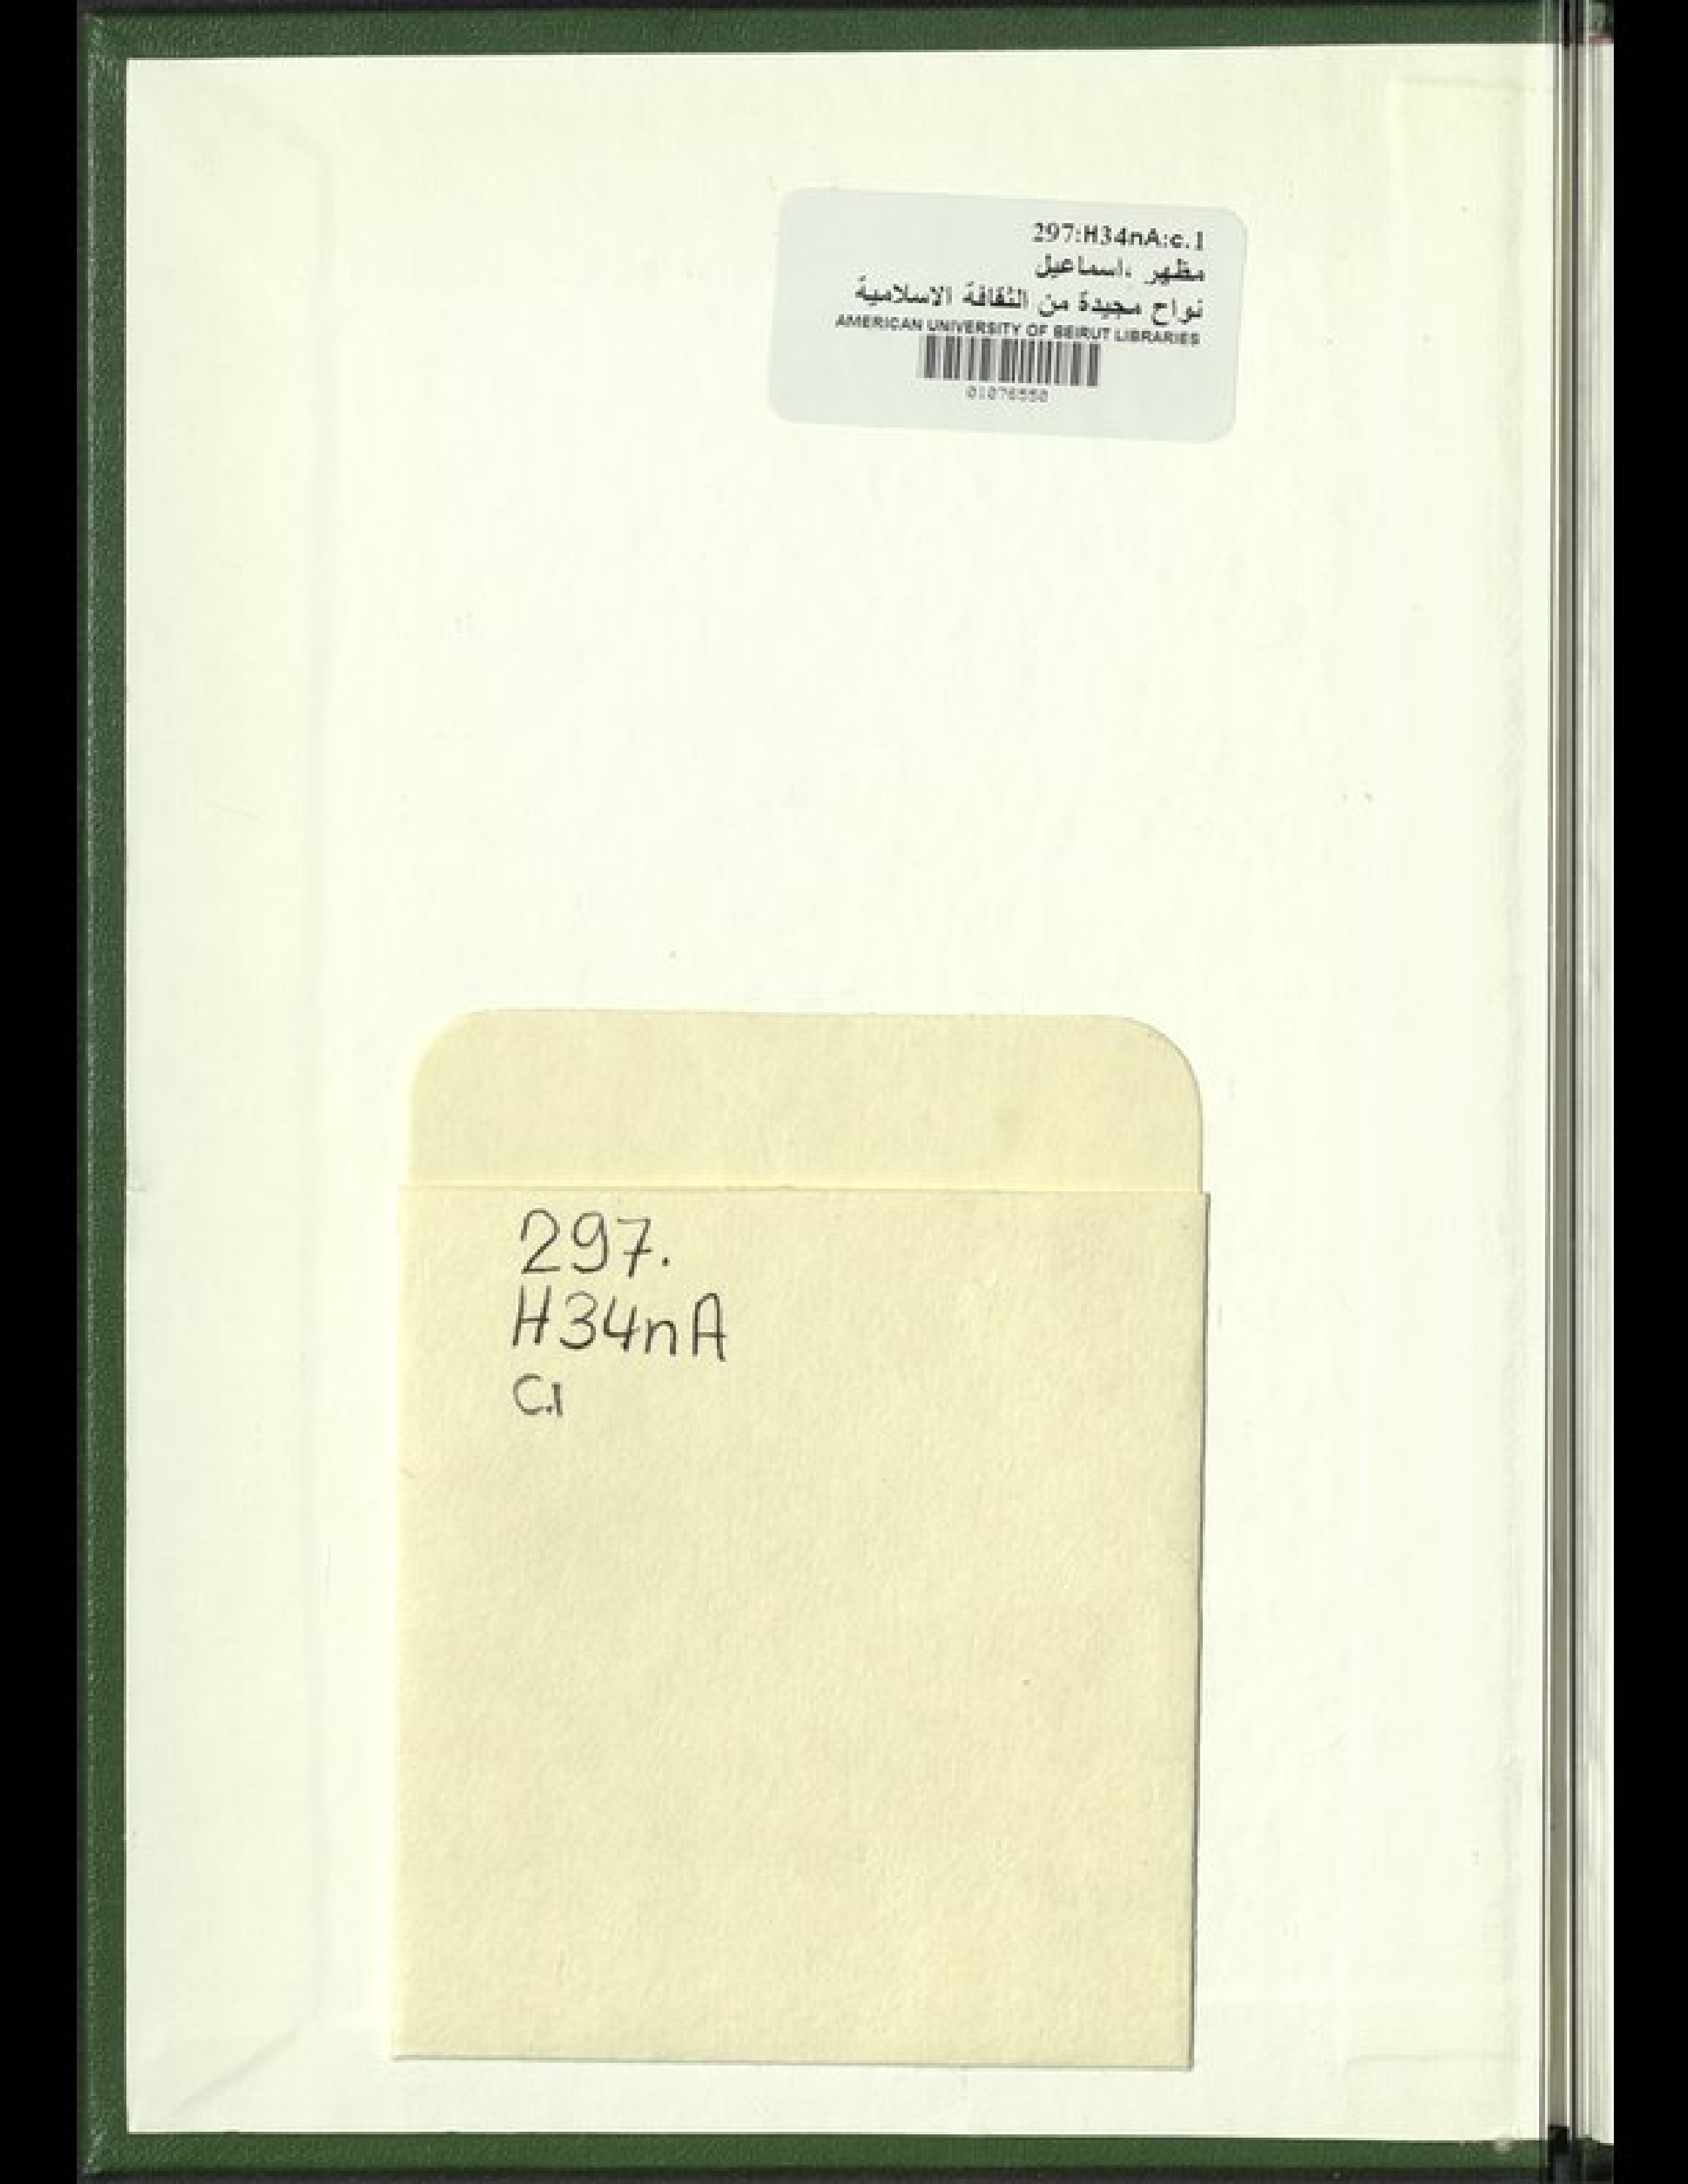 297:H34nA:c.1
مظهر ،اسماعيل
نواح مجيدة من الثقافة الاسلامية
AMERICAN UNIVERSITY OF BEIRUT LIBRARIES
01076550
297.
H34nA
C.1